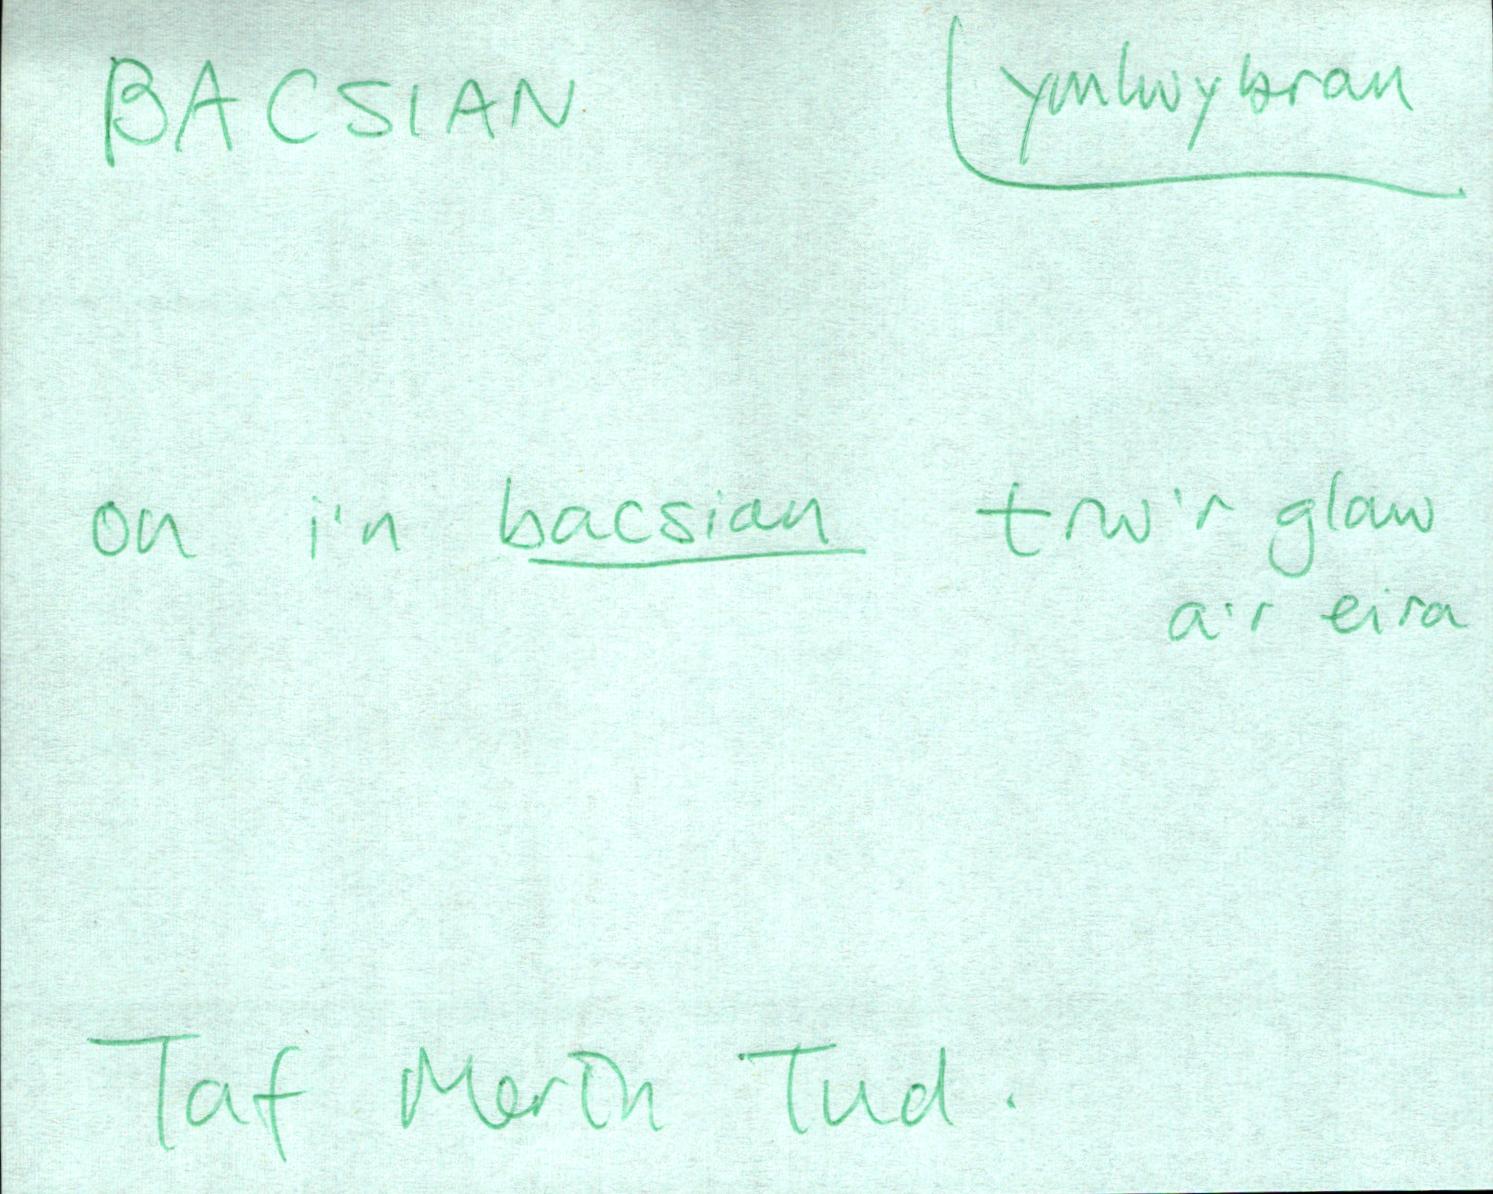 BACSIAN ymlwybran
on i'n bacsian trw'r glaw
a'r eira
Taf Merth Tud.